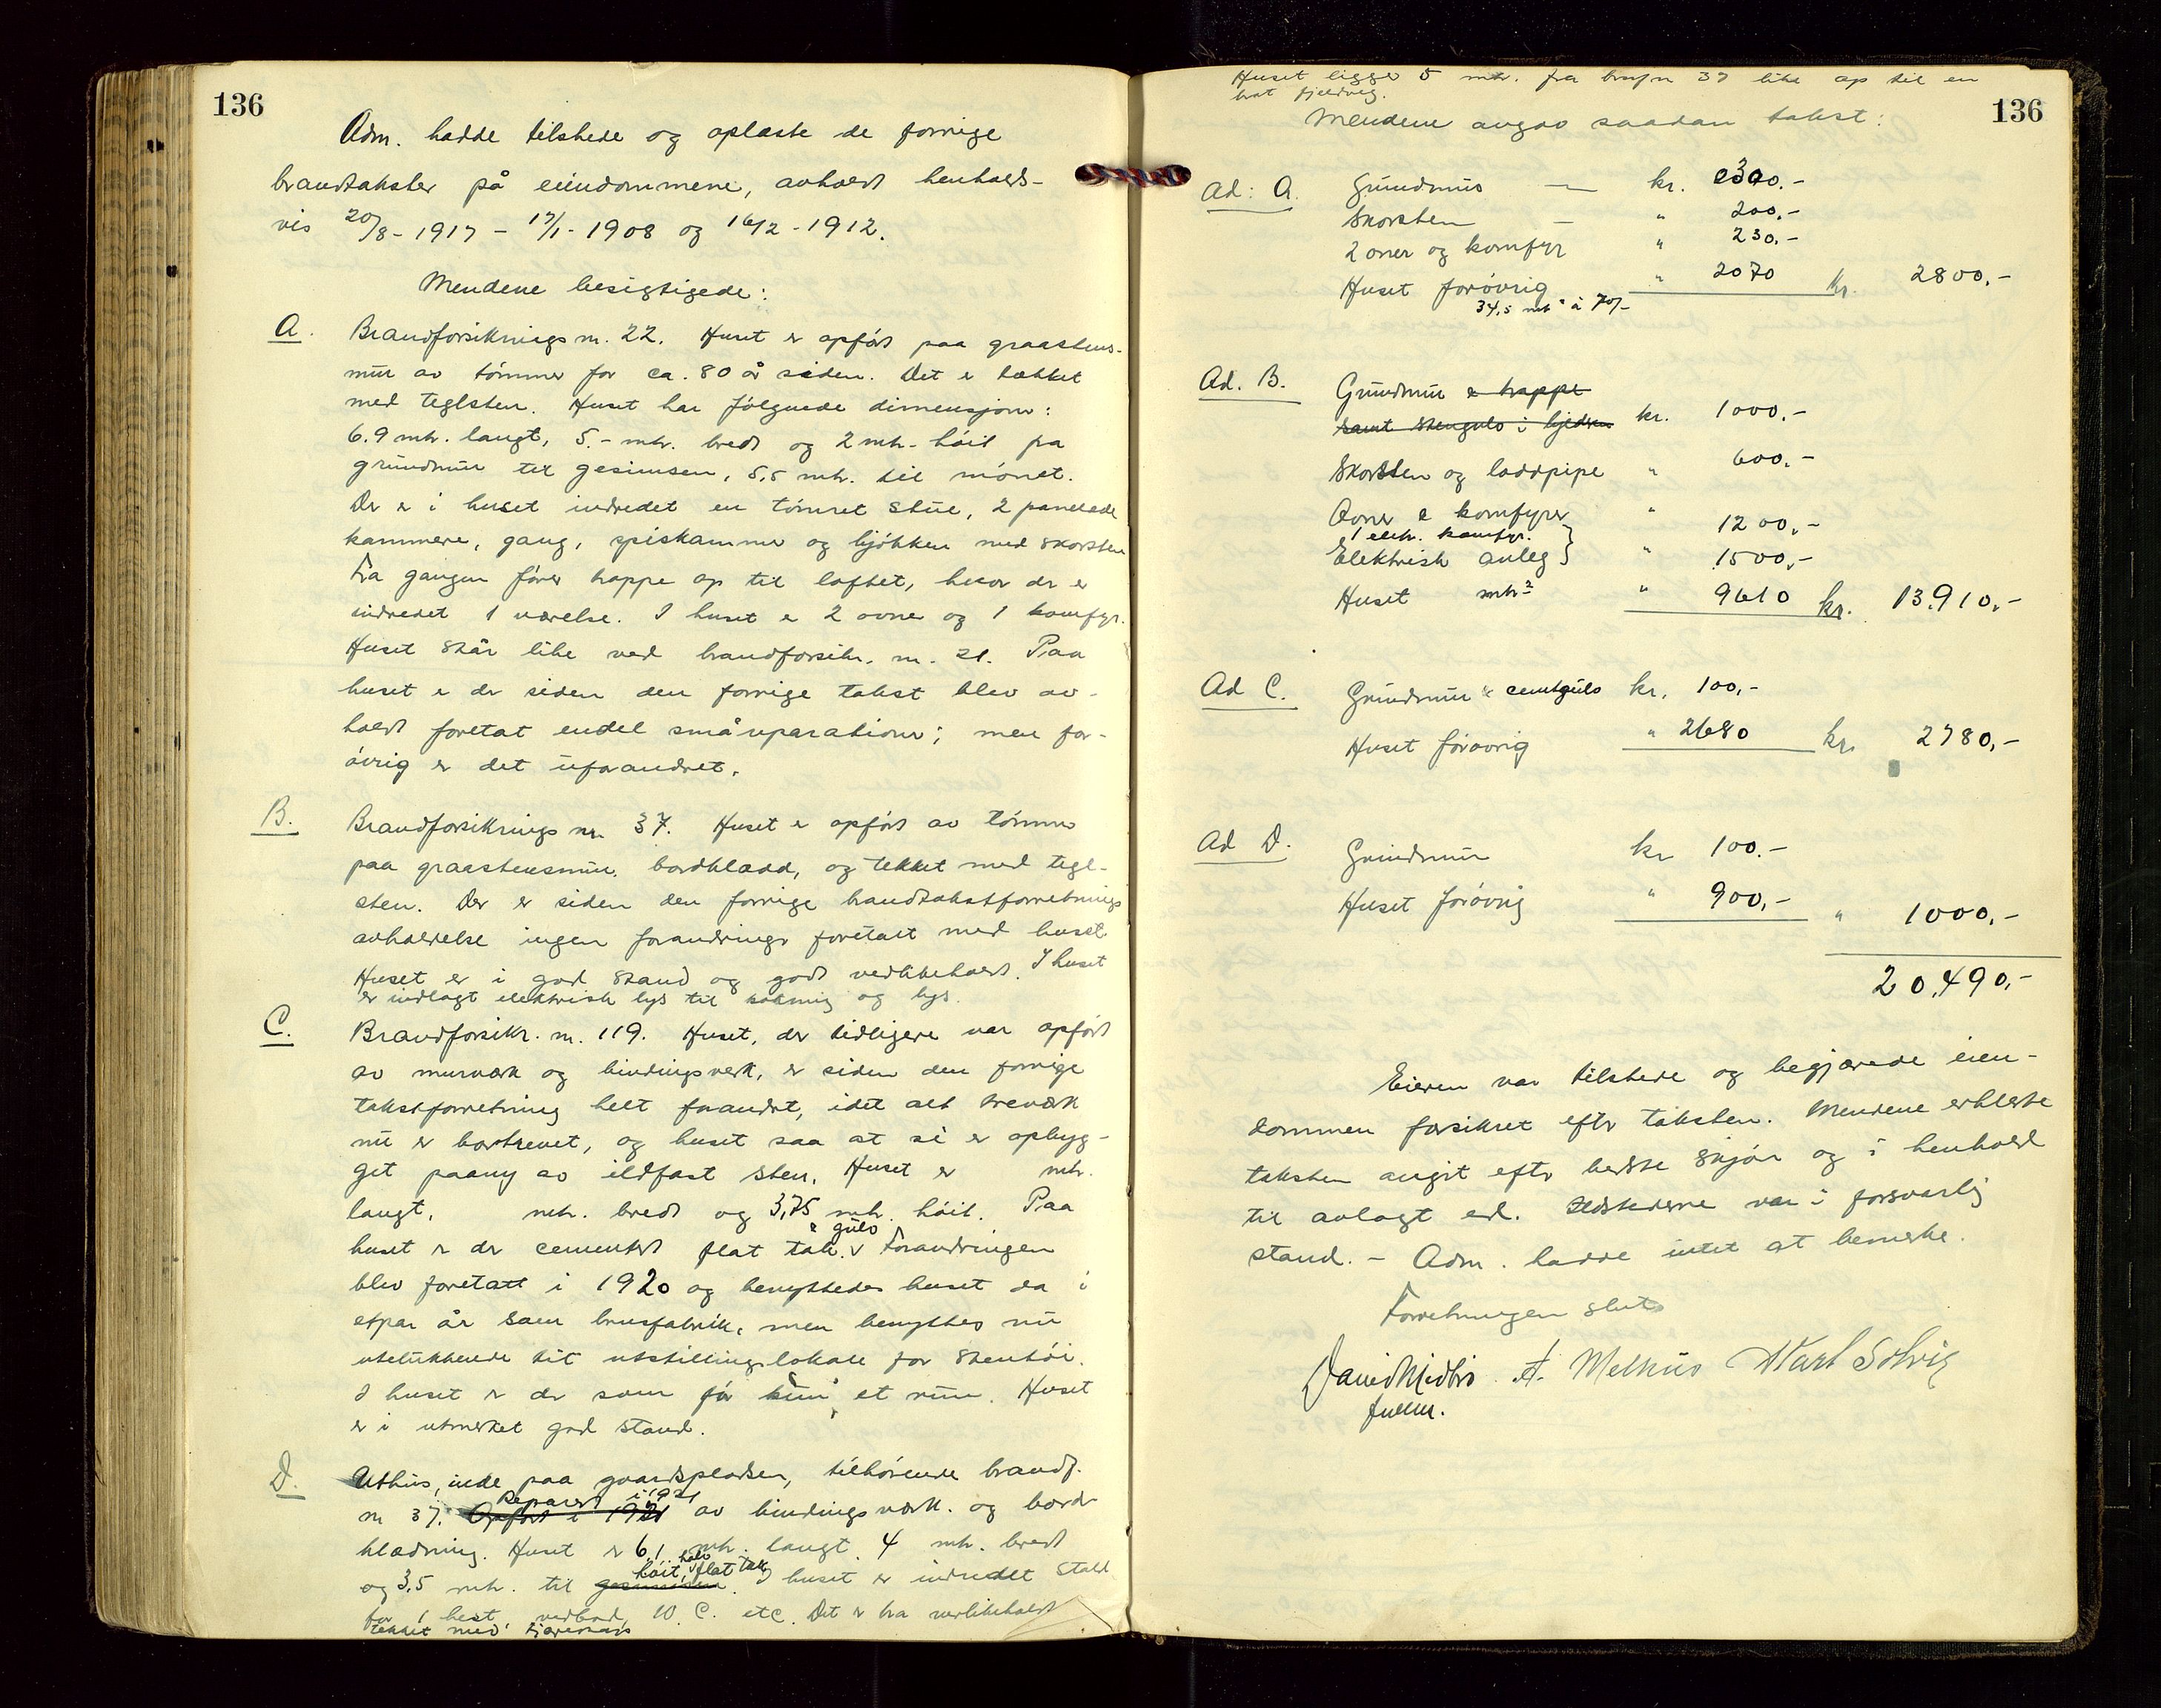 136
Adm. hadde tilstede og oplæste de forrige
brandtakster på eiendommene, avholdt henholds-
vis 20/8 - 1917 - 17/1 - 1908 og 16/2 - 1912.
Mendene besigtigede:
A. Brandforsikrings nr. 22. Huset er opført paa graastens-
mur av tømmer for ca. 80 år siden. Det er tækket
med teglsten. Huset har følgende dimensjoner:
6.9 mtr. langt, 5.- mtr. bredt og 2 mtr. høit fra
grundmur til gesimsen, 5,5 mtr. til mønet.
Der er i huset indredet en tømret stue, 2 panelede
kammere, gang, spiskammer og kjøkken med skorsten
Fra gangen fører trappe op til loftet, hvor der er
indredet 1 værelse. I huset er 2 ovner og 1 komfyr.
Huset står like ved brandforsikr. nr. 21. Paa
huset er der siden den forrige takst blev av-
holdt foretat endel småreparationer; men for-
øvrig er det uforandret.
B. Brandforsikrings nr. 37. Huset er opført av tømmer
paa graastensmur, bordklædd, og tekket med tegl-
sten. Der er siden den forrige brandtakstforretnings
avholdelse ingen forandringer foretatt med huset
Huset er i god stand og godt vedlikeholdt. I huset
er indlagt elektrisk lys til kokning og lys.
C. Brandforsikr. nr. 119. Huset, der tidligere var opført
av murværk og bindingsverk, er siden den forrige
takstforretning helt forandret, idet alt treværk
nu er bortrevet, og huset saa at si er opbyg-
get paany av ildfast sten. Huset er mtr.
langt, mtr. bredt og 3,75 mtr. høit. Paa
huset er der cementert flat tak & gulv. Forandringen
blev foretatt i 1920 og benyttedes huset da i
etpar år som brusfabrik, men benyttes nu
utelukkende til utstillingslokale for stentøi.
I huset er der som før kun et rum. Huset
er i utmerket god stand.
D. Uthus, inde paa gaardspladsen, tilhørende brandf.
nr 37. Opført i 1921 Reparert i 1921 av bindingsverk. og bord-
klædning. Huset er 6,1 mtr. langt 4 mtr. bredt
og 3,5 mtr. til gesimsen høit, halv flat tak. I huset er indredet stall
for 1 hest, vedbod, W.C. etc. Det er bra vedlikeholdt
tekket med tjærepapp
Huset ligger 5 mtr. fra brnf nr 37 like op til en
brat fjeldvæg.
136
Mendene avgav saadan takst:
Ad: A. Grundmur kr. 300.-
Skorsten " 200.-
2 ovner og komfyr " 230.-
Huset forøvrig " 2070 kr. 2800.-
34,5 mtr² à 70/-
Ad. B. Grundmur & trappe
samt stengulv i kjelderen kr. 1000.-
Skorsten og loddpipe " 600.-
Ovner & komfyrer " 1200.-
1 elektr. komfyr.
Elektrisk anleg " 1500.-
Huset mtr² " 9610 kr. 13.910.-
Ad C. Grundmur & cemtgulv kr. 100.-
Huset forøvrig " 2680 kr. 2780.-
Ad D. Grundmur kr 100.-
Huset forøvrig " 900.- " 1000.-
20.490.-
Eieren var tilstede og begjærede eien-
dommen forsikret efter taksten. Mendene erklærte
taksten avgit efter bedste skjøn og i henhold
til avlagt ed. Ildstederne var i forsvarlig
stand. - Adm. hadde intet at bemerke.
Forretningen slut
David Midbrø A. Melhus Karl Solvig
fullm.